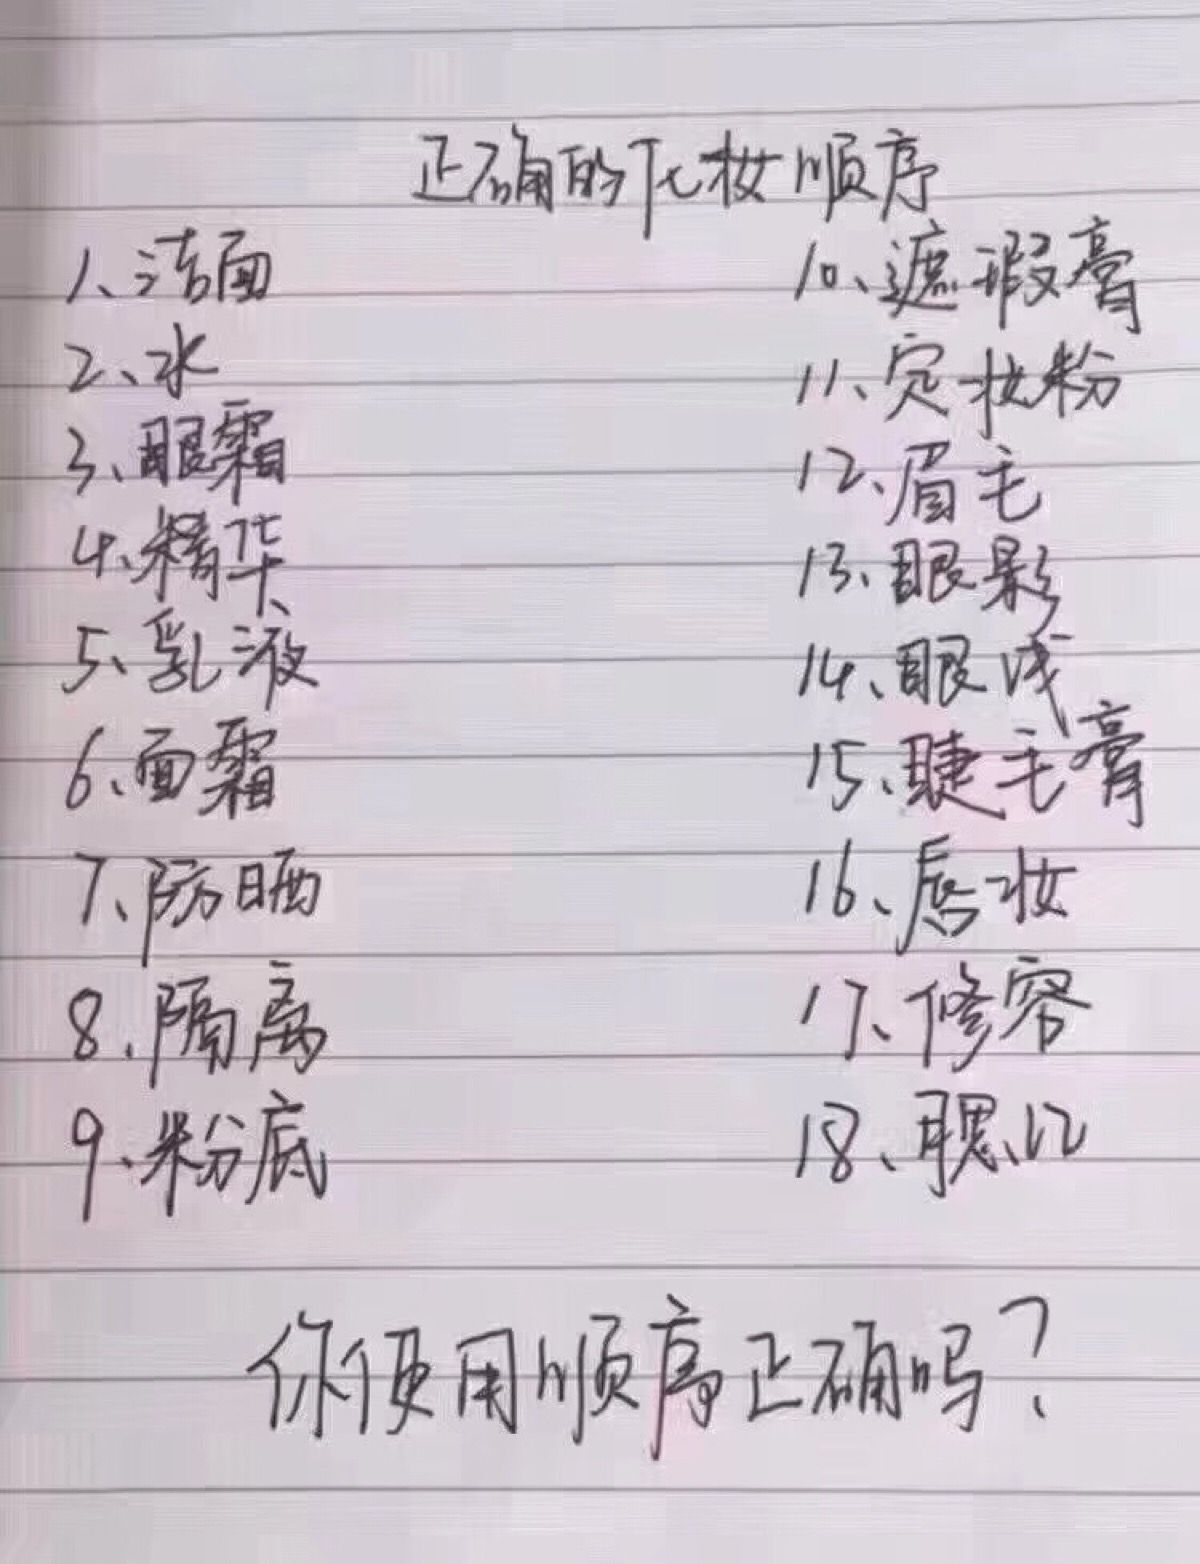 正确的化妆顺序
1、洁面
2、水
3、眼霜
4、精华
5、乳液
6、面霜
7、防晒
8、隔离
9、粉底
10、遮瑕膏
11、定妆粉
12、眉毛
13、眼影
14、眼线
15、睫毛膏
16、唇妆
17、修容
18、腮红
你使用顺序正确吗？